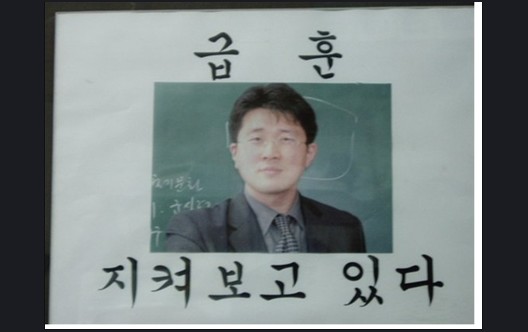 급 훈
지켜보고 있다